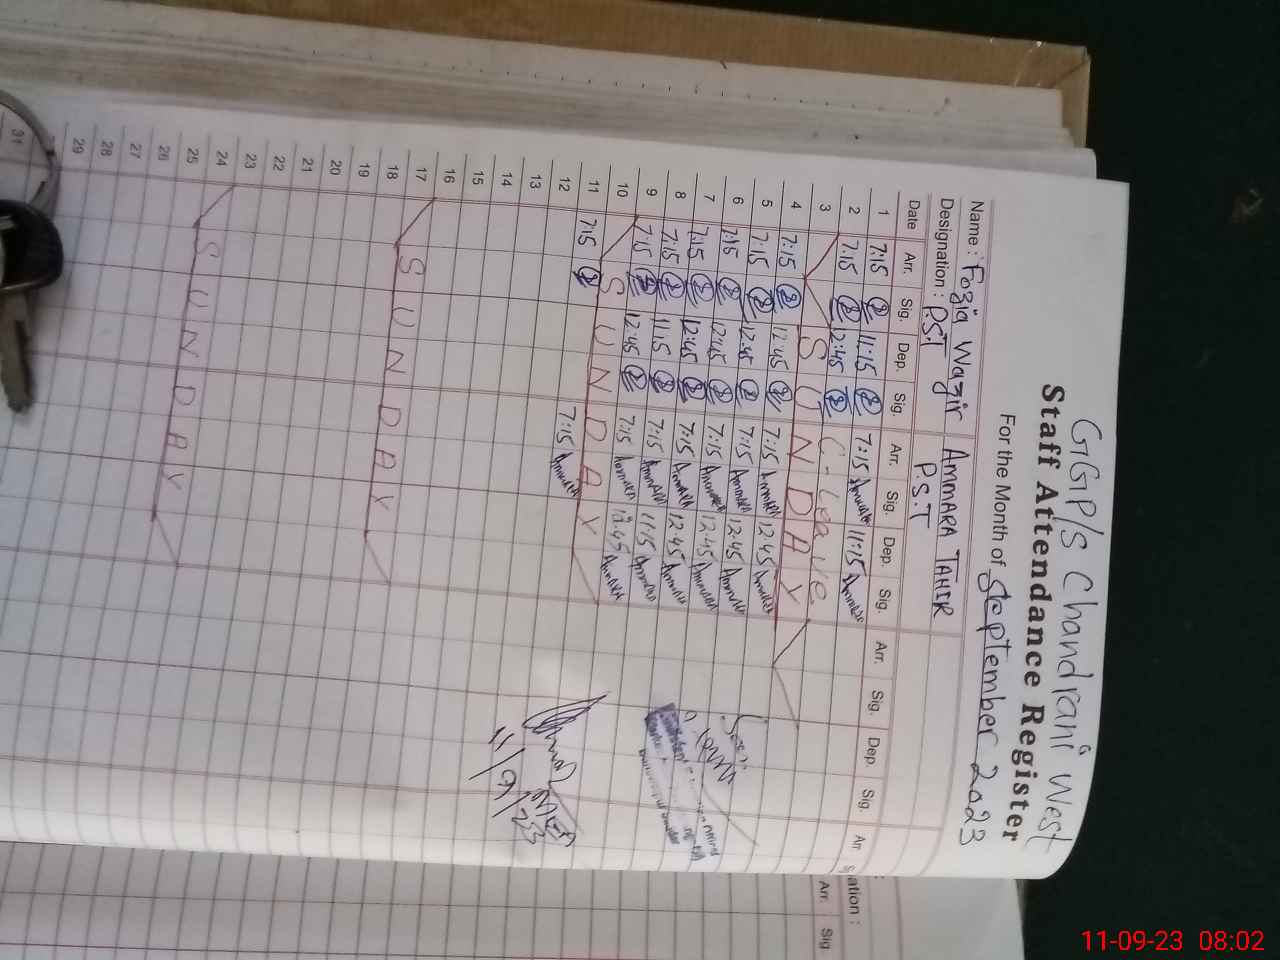 GGP/S Chandrani West
Staff Attendance Register
For the Month of September 2023
Name : Fozia Wazir AMMARA TAHIR
Designation : P.S.T P.S.T
Date Arr. Sig. Dep. Sig. Arr. Sig. Dep. Sig. Arr. Sig. Dep. Sig. Arr
1 7:15 11:15 7:15 Ammara 11:15 Ammara
2 7:15 12:45 C-Leave
3 SUNDAY
4 7:15 12:45 7:15 Ammara 12:45 Ammara
5 7:15 12:45 7:15 Ammara 12:45 Ammara
6 7:15 12:45 7:15 Ammara 12:45 Ammara
7 7:15 12:45 7:15 Ammara 12:45 Ammara
8 7:15 11:15 7:15 Ammara 11:15 Ammara
9 7:15 12:45 7:15 Ammara 12:45 Ammara
10 SUNDAY
11 7:15 7:15 Ammara
12
13
14
15
16
17 SUNDAY
18
19
20
21
22
23
24 SUNDAY
25
26
27
28
29
31
11/9/23
ation :
Arr. Sig
11-09-23 08:02